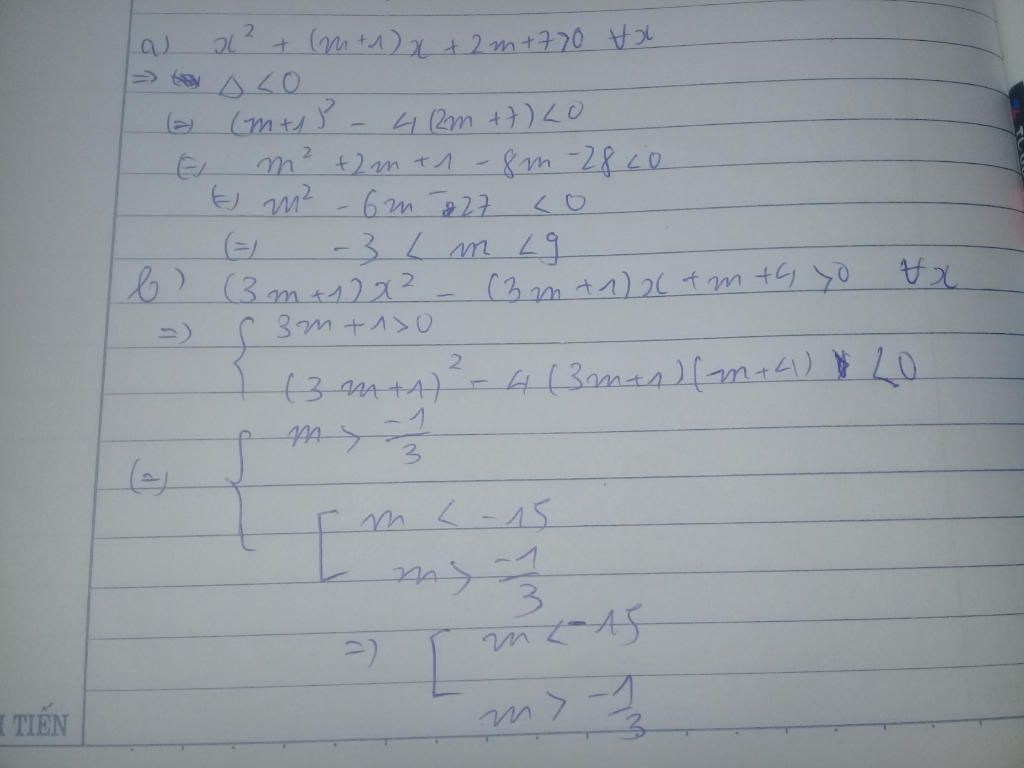 a) x² + (m+1)x + 2m+7>0 ∀x
=> Δ <0
(=) (m+1)² - 4(2m+7)<0
(=) m² +2m+1 - 8m -28<0
(=) m² - 6m -27 <0
(=) -3 < m <9
b) (3m+1)x² - (3m+1)x + m+4 >0 ∀x
=> { 3m+1>0
(3m+1)² - 4(3m+1)(m+4) <0
(=) { m > -1/3
[ m < -15
m > -1/3
=> [ m <-15
m > -1/3
TIẾN